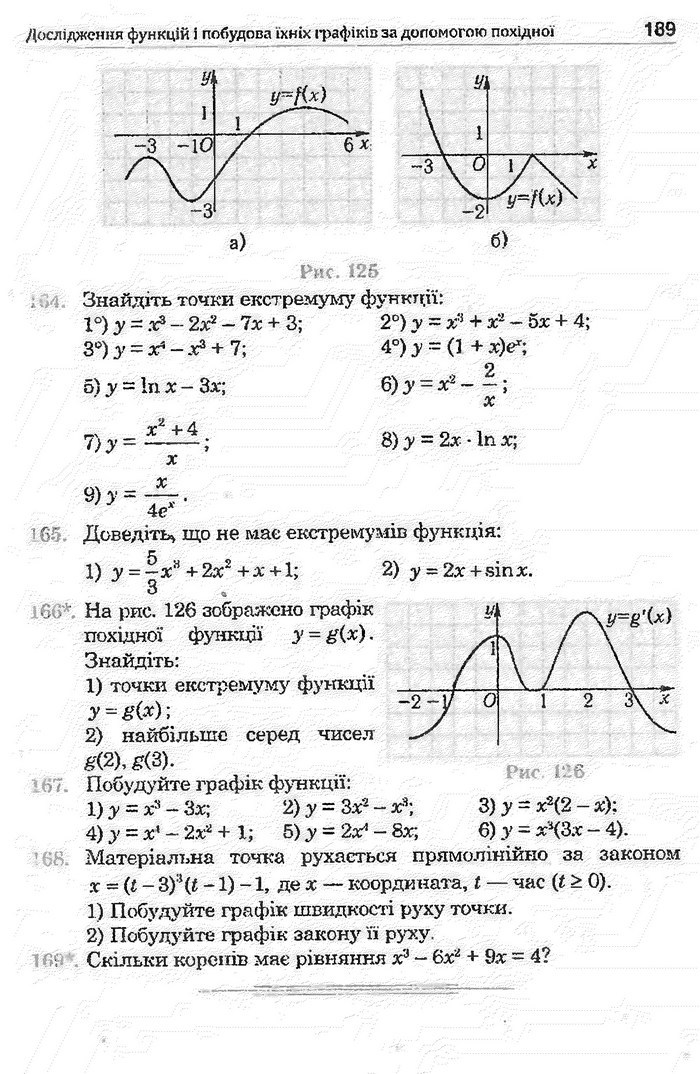 Дослідження функцій і побудова їхніх графіків за допомогою похідної 189
y
y=f(x)
1
1
−3 −1 O 6 x
−3
а)
y
1
−3 O 1 x
−2
y=f(x)
б)
Рис. 125
164. Знайдіть точки екстремуму функції:
1°) y = x³ – 2x² – 7x + 3; 2°) y = x³ + x² – 5x + 4;
3°) y = x⁴ – x³ + 7; 4°) y = (1 + x)eˣ;
5) y = ln x – 3x; 6) y = x² – 2/x;
7) y = (x² + 4)/x; 8) y = 2x · ln x;
9) y = x/4eˣ.
165. Доведіть, що не має екстремумів функція:
1) y = 5/3 x³ + 2x² + x + 1; 2) y = 2x + sin x.
166*. На рис. 126 зображено графік
похідної функції y = g(x).
Знайдіть:
1) точки екстремуму функції
y = g(x);
2) найбільше серед чисел
g(2), g(3).
y
y=g'(x)
1
−2 −1 O 1 2 3 x
Рис. 126
167. Побудуйте графік функції:
1) y = x³ – 3x; 2) y = 3x² – x³; 3) y = x²(2 – x);
4) y = x⁴ – 2x² + 1; 5) y = 2x⁴ – 8x; 6) y = x³(3x – 4).
168. Матеріальна точка рухається прямолінійно за законом
x = (t – 3)³(t – 1) – 1, де x — координата, t — час (t ≥ 0).
1) Побудуйте графік швидкості руху точки.
2) Побудуйте графік закону її руху.
169*. Скільки коренів має рівняння x³ – 6x² + 9x = 4?